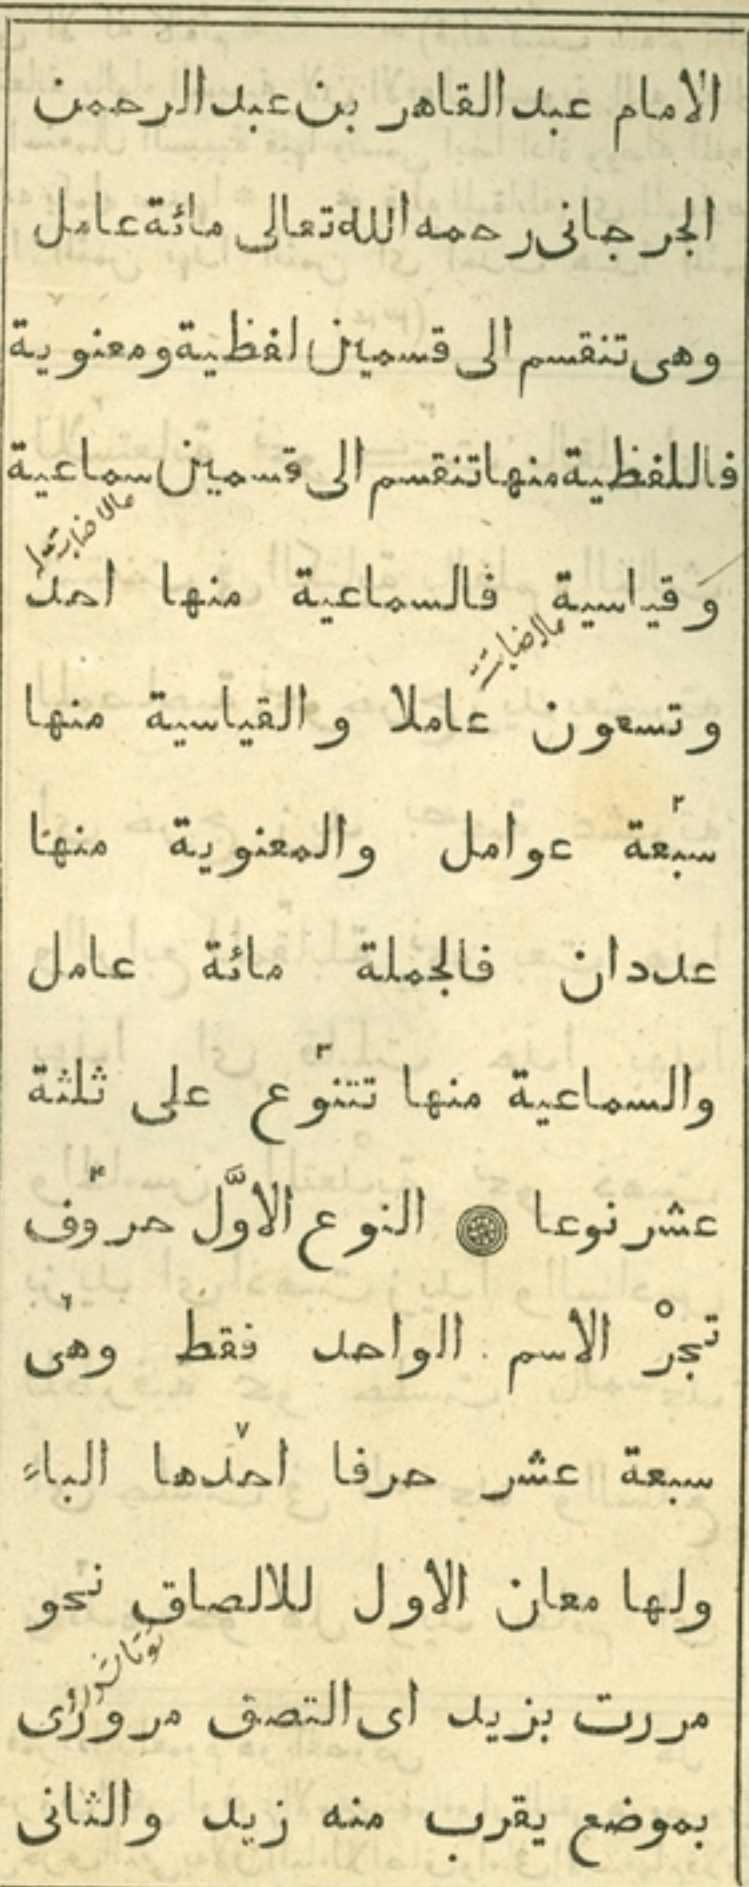 الامام عبد القاهر بن عبد الرحمن
الجرجانى رحمه الله تعالى مائة عامل
وهى تنقسم الى قسمين لفظية ومعنوية
فاللفظية منها تنقسم الى قسمين سماعية
وقياسية فالسماعية منها احد
وتسعون عاملا والقياسية منها
سبعة عوامل والمعنوية منها
عددان فالجملة مائة عامل
والسماعية منها تتنوع على ثلثة
عشر نوعا النوع الاوَّل حروف
تجرّ الاسم الواحد فقط وهى
سبعة عشر حرفا احدها الباء
ولها معان الاول للالصاق نحو
مررت بزيد اى التصق مرورى
بموضع يقرب منه زيد والثانى